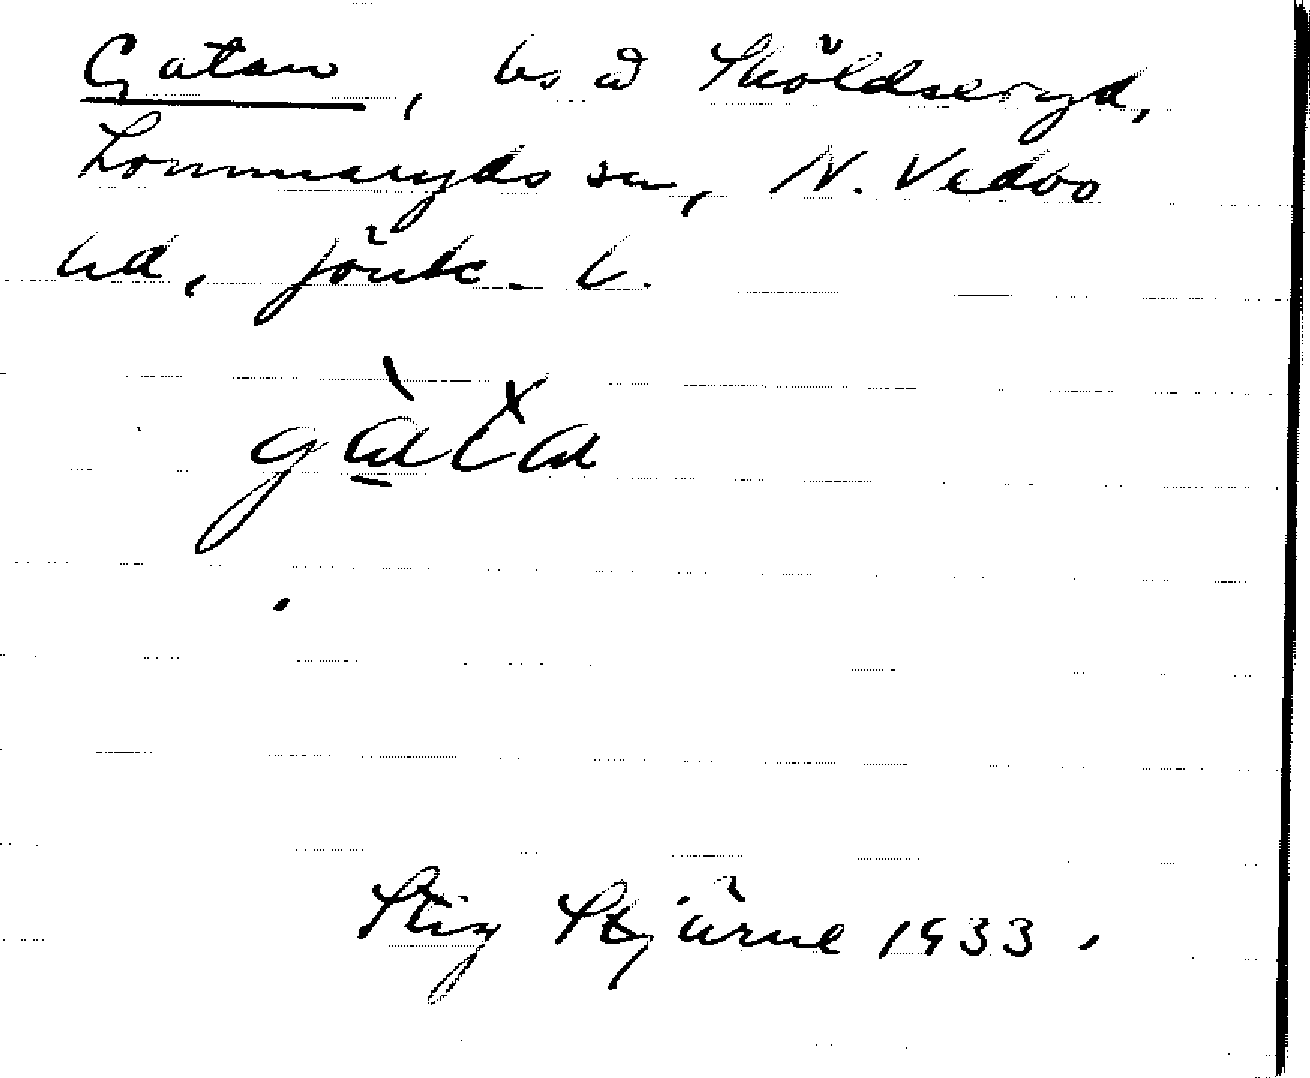 Gatan, ls å Sköldseryd,
Lommaryds sn, N. Vedbo
hd, Jönk. l.
gàta
Stig Stjärne 1933.